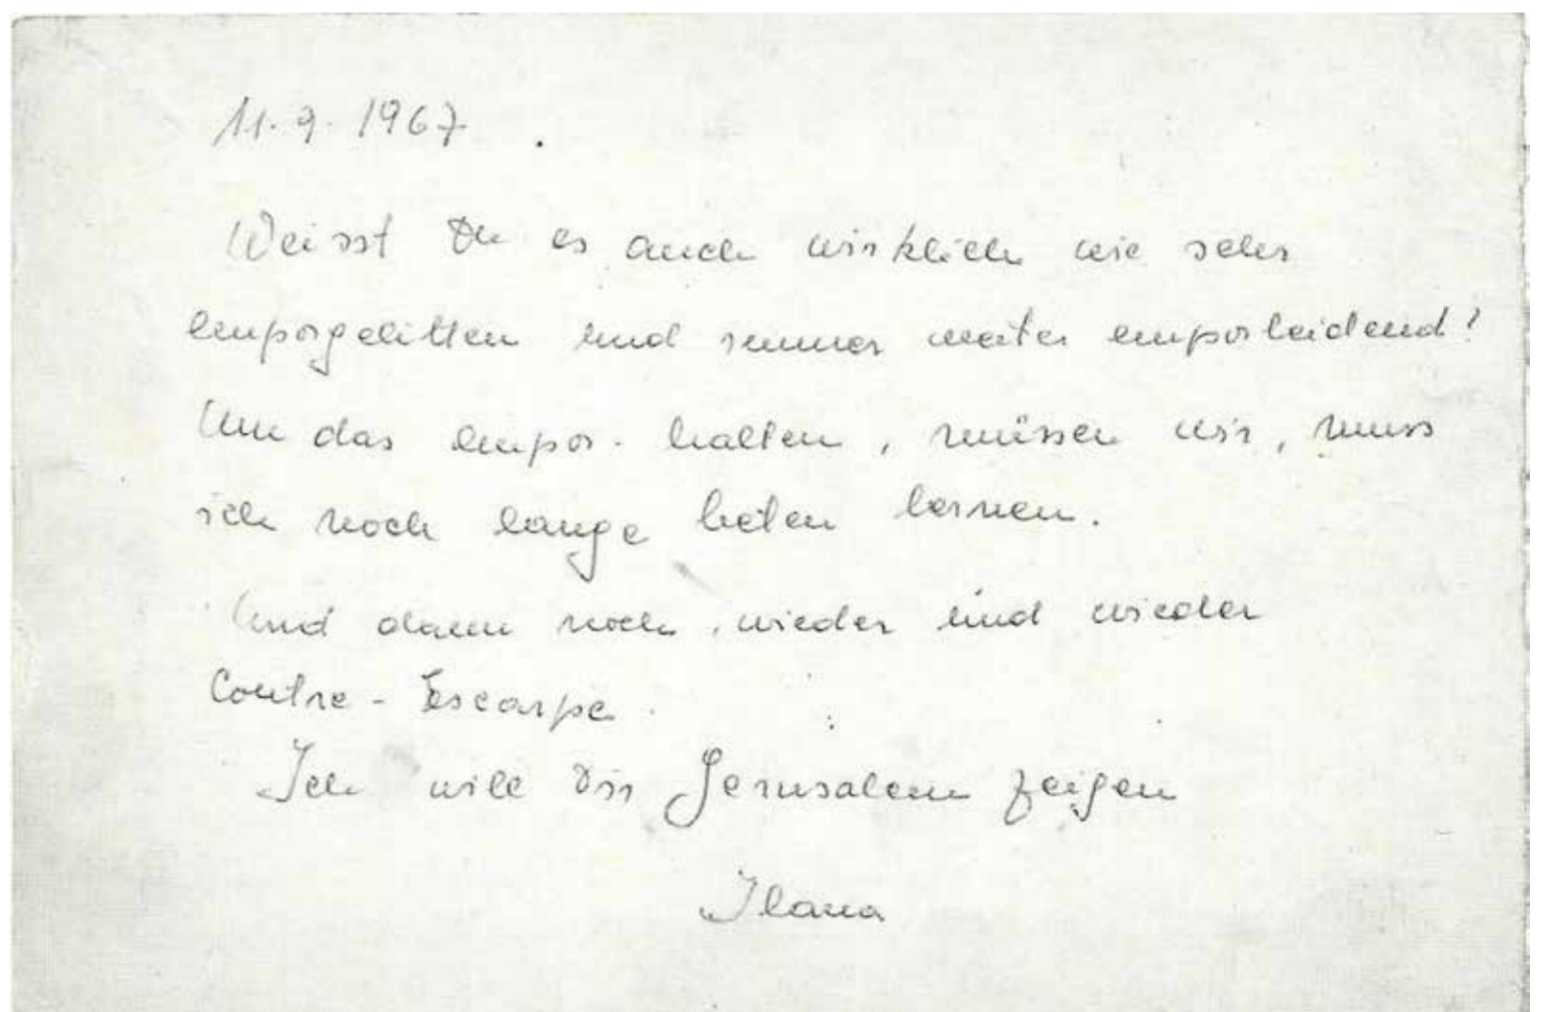 11.9.1967.
Weisst Du es auch wirklich wie sehr
emporgelitten und immer weiter emporleidend?
Um das empor-halten, müssen wir, muss
ich noch lange beten lernen.
Und dann noch, wieder und wieder
Contre-Escarpe.
Ich will Dir Jerusalem zeigen
Ilana